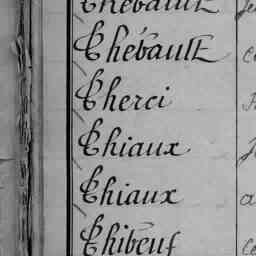 Thébault
Thébault
Therci
Thiaux
Thiaux
Thibeuf